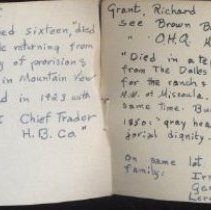 ed sixteen, "died
le returning from
y of provisions
in Mountain
d in 1923 with
s Chief Trader
H.B. Co."
Grant, Richard
see Brown B
" O.H.Q.
"Died in a te
from The Dalles
for the ranch
N.W. of Missoula.
same time. Bu
1850: "gray hea
torial dignity.
On same lot
family: